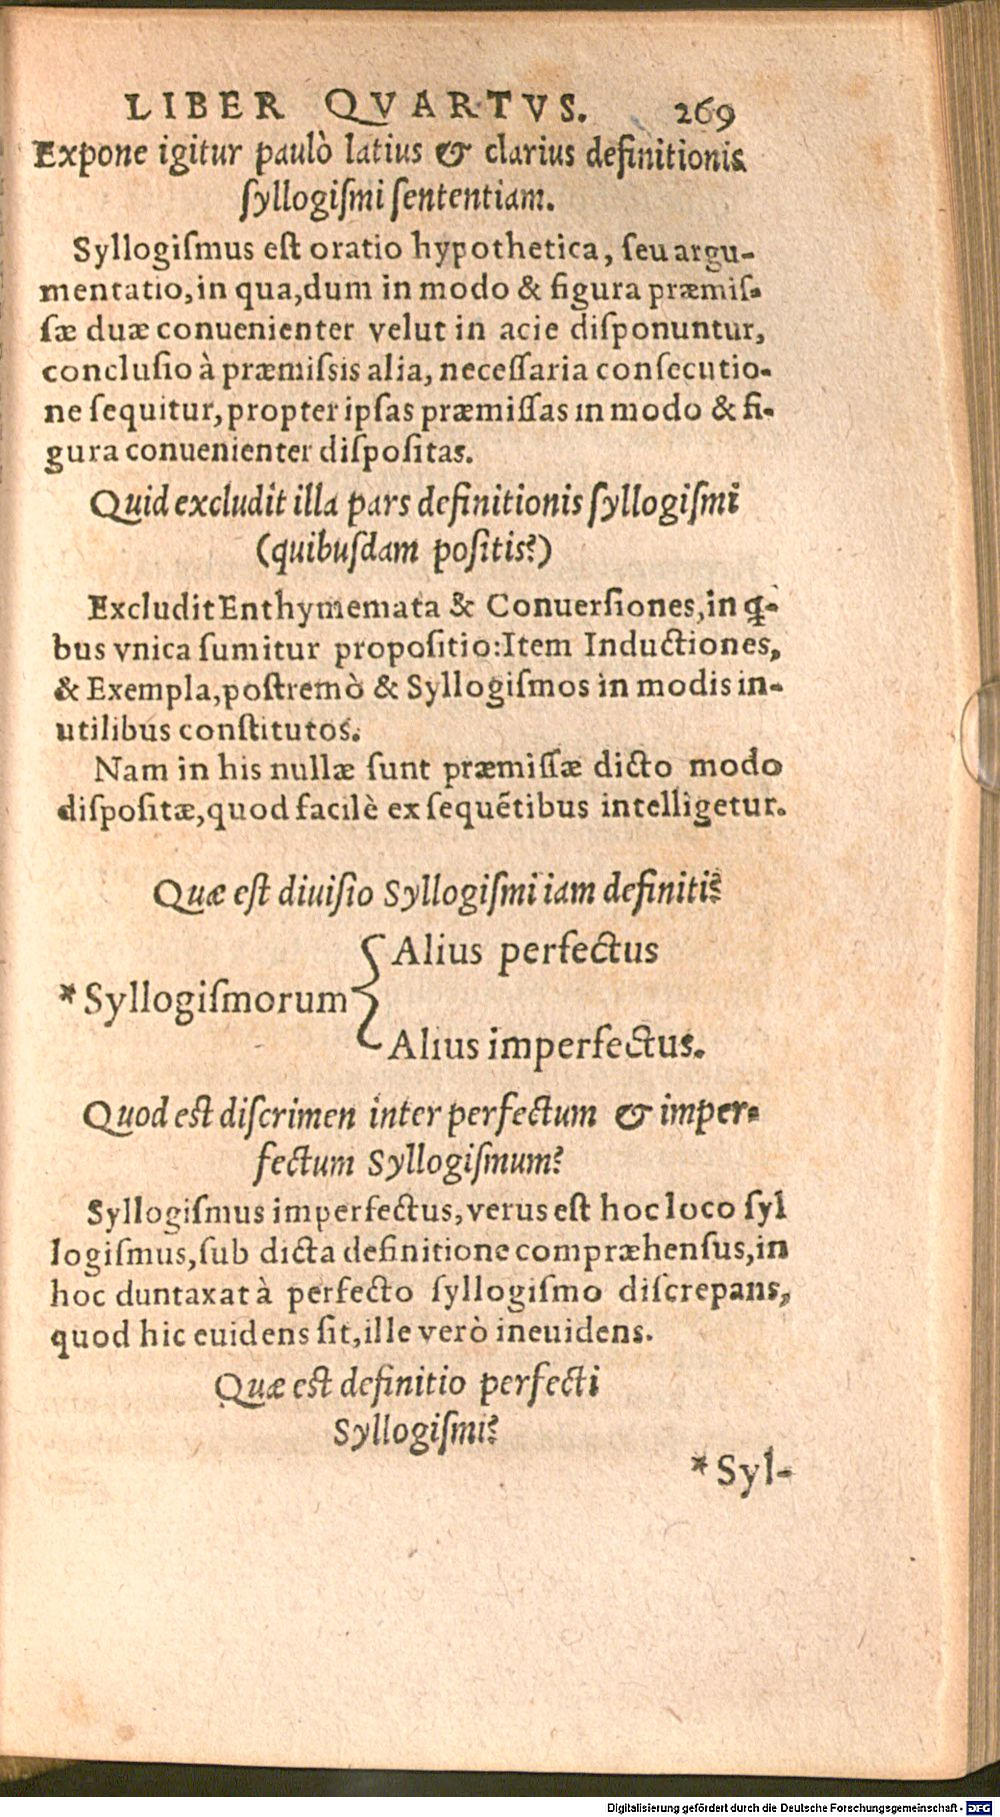 LIBER QVARTVS. 269
Expone igitur paulò latius & clarius definitionis
ſyllogiſmi ſententiam.
Syllogiſmus eſt oratio hypothetica, ſeu argu-
mentatio, in qua, dum in modo & figura præmiſ-
ſæ duæ conuenienter velut in acie diſponuntur,
concluſio à præmiſsis alia, neceſſaria conſecutio-
ne ſequitur, propter ipſas præmiſſas in modo & fi-
gura conuenienter diſpoſitas.
Quid excludit illa pars definitionis ſyllogiſmi
(quibuſdam poſitis?)
Excludit Enthymemata & Conuerſiones, in ꝗ-
bus vnica ſumitur propoſitio: Item Inductiones,
& Exempla, poſtremò & Syllogiſmos in modis in-
utilibus conſtitutos.
Nam in his nullæ ſunt præmiſſæ dicto modo
diſpoſitæ, quod facilè ex ſequẽtibus intelligetur.
Quæ eſt diuiſio Syllogiſmi iam definiti?
Alius perfectus
*Syllogiſmorum
Alius imperfectus.
Quod eſt diſcrimen inter perfectum & imper-
fectum Syllogiſmum?
Syllogiſmus imperfectus, verus eſt hoc loco ſyl
logiſmus, ſub dicta definitione compræhenſus, in
hoc duntaxat à perfecto ſyllogiſmo diſcrepans,
quod hic euidens ſit, ille verò ineuidens.
Quæ eſt definitio perfecti
Syllogiſmi?
*Syl-
Digitalisierung gefördert durch die Deutsche Forschungsgemeinschaft - DFG